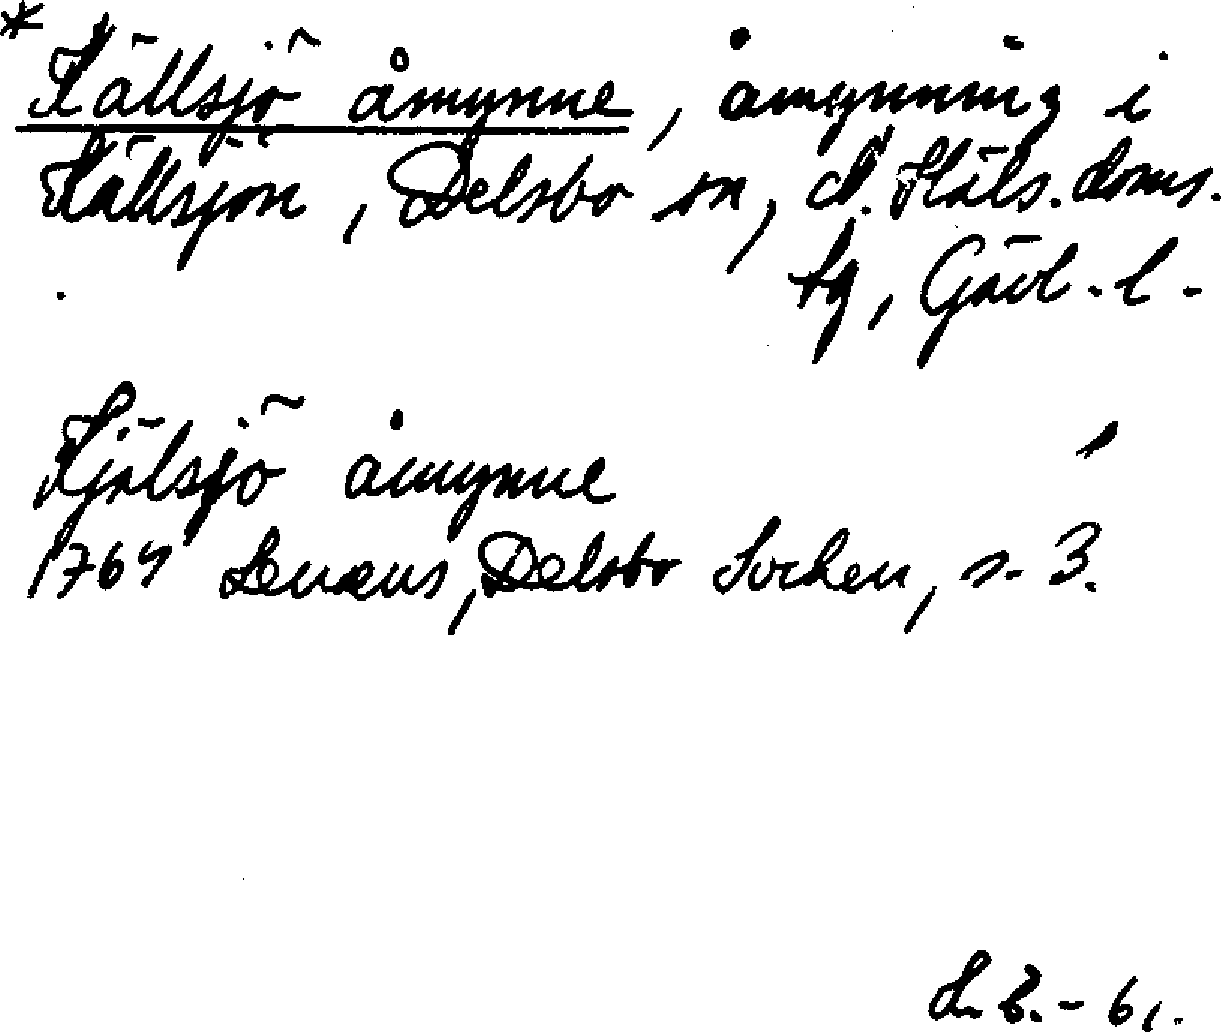 *Källsjö åmynne, åmynning i
Källsjön, Delsbo sn, N. Häls. doms.
tg, Gävl. l.
Kjälsjö åmynne
1764 Lenæus, Delsbo Socken, s. 3.
L. B. - 61.